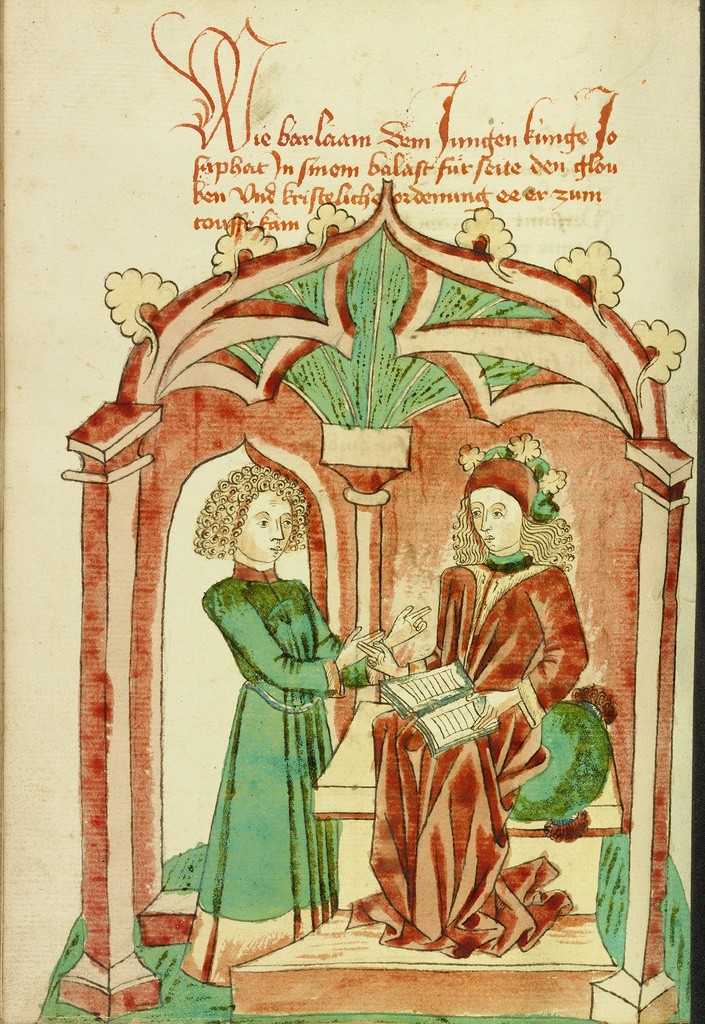 Wie barlaam dem Jungen kunge Jo
saphat Jn sinem balast fur seite den glou
ben Vnd kristeliche ordenung ee er zum
touffe kam